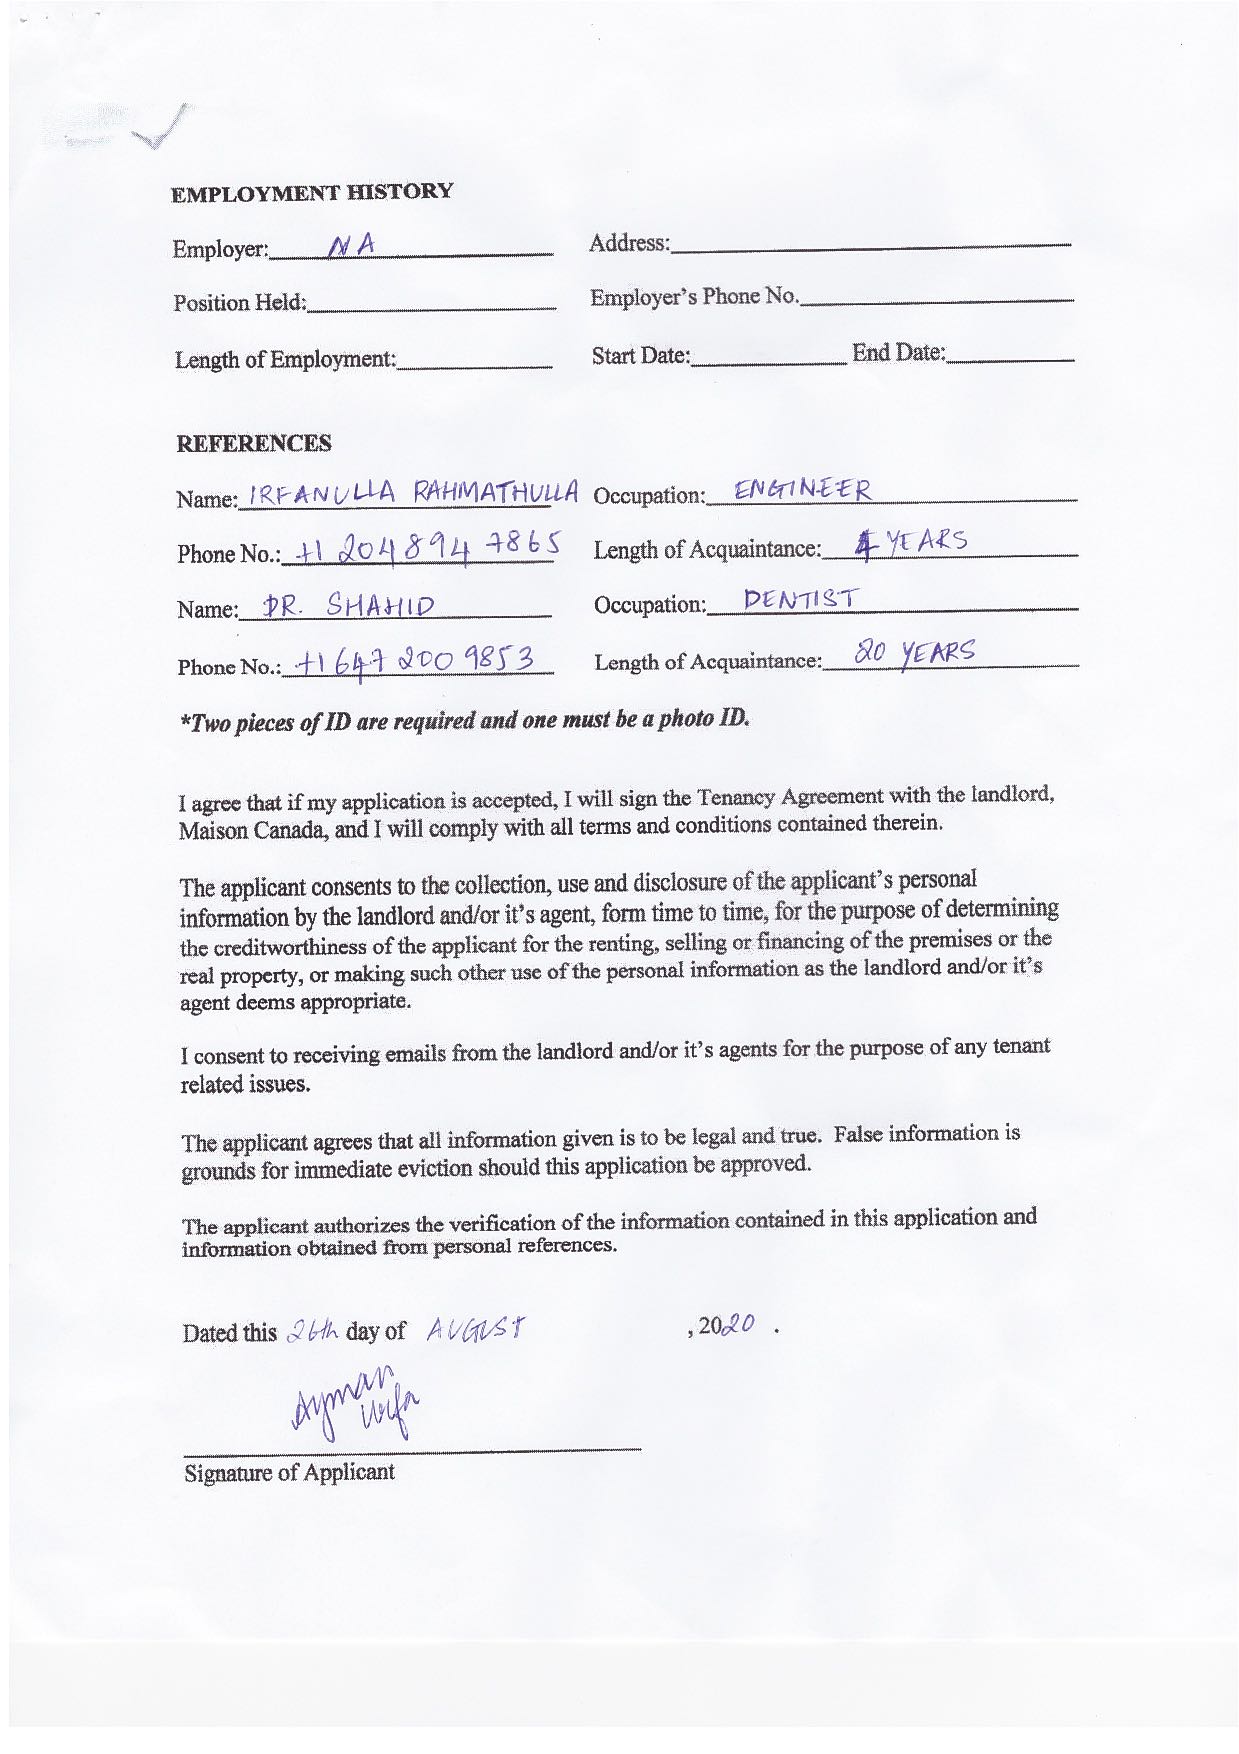 EMPLOYMENT HISTORY
Employer: NA Address:
Position Held: Employer's Phone No.
Length of Employment: Start Date: End Date:
REFERENCES
Name: IRFANULLA RAHMATHULLA Occupation: ENGINEER
Phone No.: +1 204 894 7865 Length of Acquaintance: 4 YEARS
Name: DR. SHAHID Occupation: DENTIST
Phone No.: +1 647 200 9853 Length of Acquaintance: 20 YEARS
*Two pieces of ID are required and one must be a photo ID.
I agree that if my application is accepted, I will sign the Tenancy Agreement with the landlord,
Maison Canada, and I will comply with all terms and conditions contained therein.
The applicant consents to the collection, use and disclosure of the applicant's personal
information by the landlord and/or it's agent, form time to time, for the purpose of determining
the creditworthiness of the applicant for the renting, selling or financing of the premises or the
real property, or making such other use of the personal information as the landlord and/or it's
agent deems appropriate.
I consent to receiving emails from the landlord and/or it's agents for the purpose of any tenant
related issues.
The applicant agrees that all information given is to be legal and true. False information is
grounds for immediate eviction should this application be approved.
The applicant authorizes the verification of the information contained in this application and
information obtained from personal references.
Dated this 26th day of AUGUST , 2020 .
Ayman
Urfa
Signature of Applicant